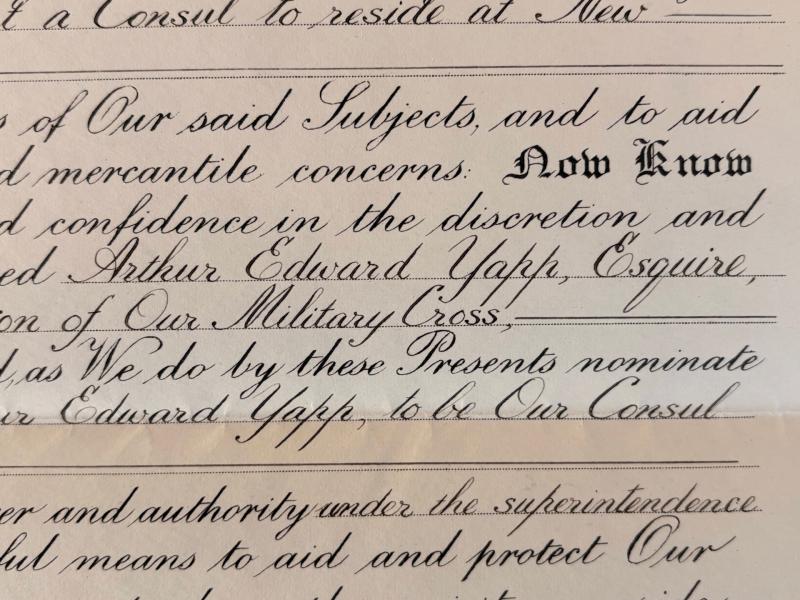 a Consul to reside at New
of Our said Subjects, and to aid
mercantile concerns: Now Know
confidence in the discretion and
Arthur Edward Yapp, Esquire,
of Our Military Cross,
as We do by these Presents nominate
Edward Yapp, to be Our Consul
and authority under the superintendence
means to aid and protect Our